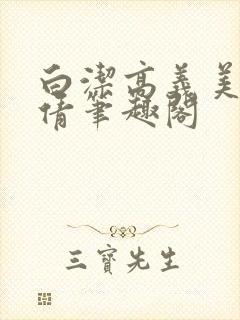 白潔高義美
倩筆趣閣
三寶先生